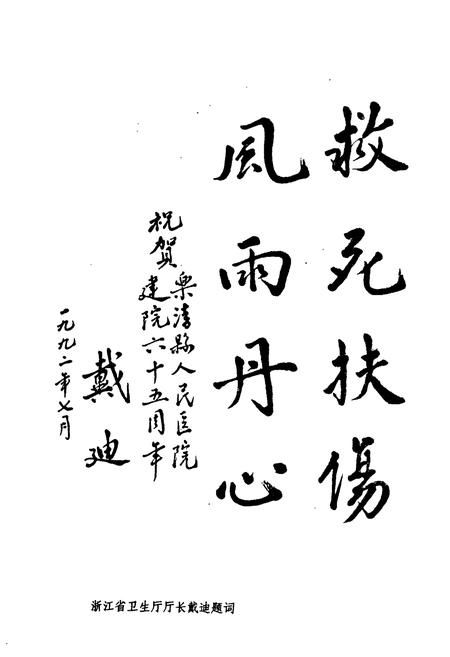 救死扶傷
風雨丹心
祝賀
樂清縣人民医院
建院六十五周年
戴迪
一九九二年七月
浙江省卫生厅厅长戴迪题词